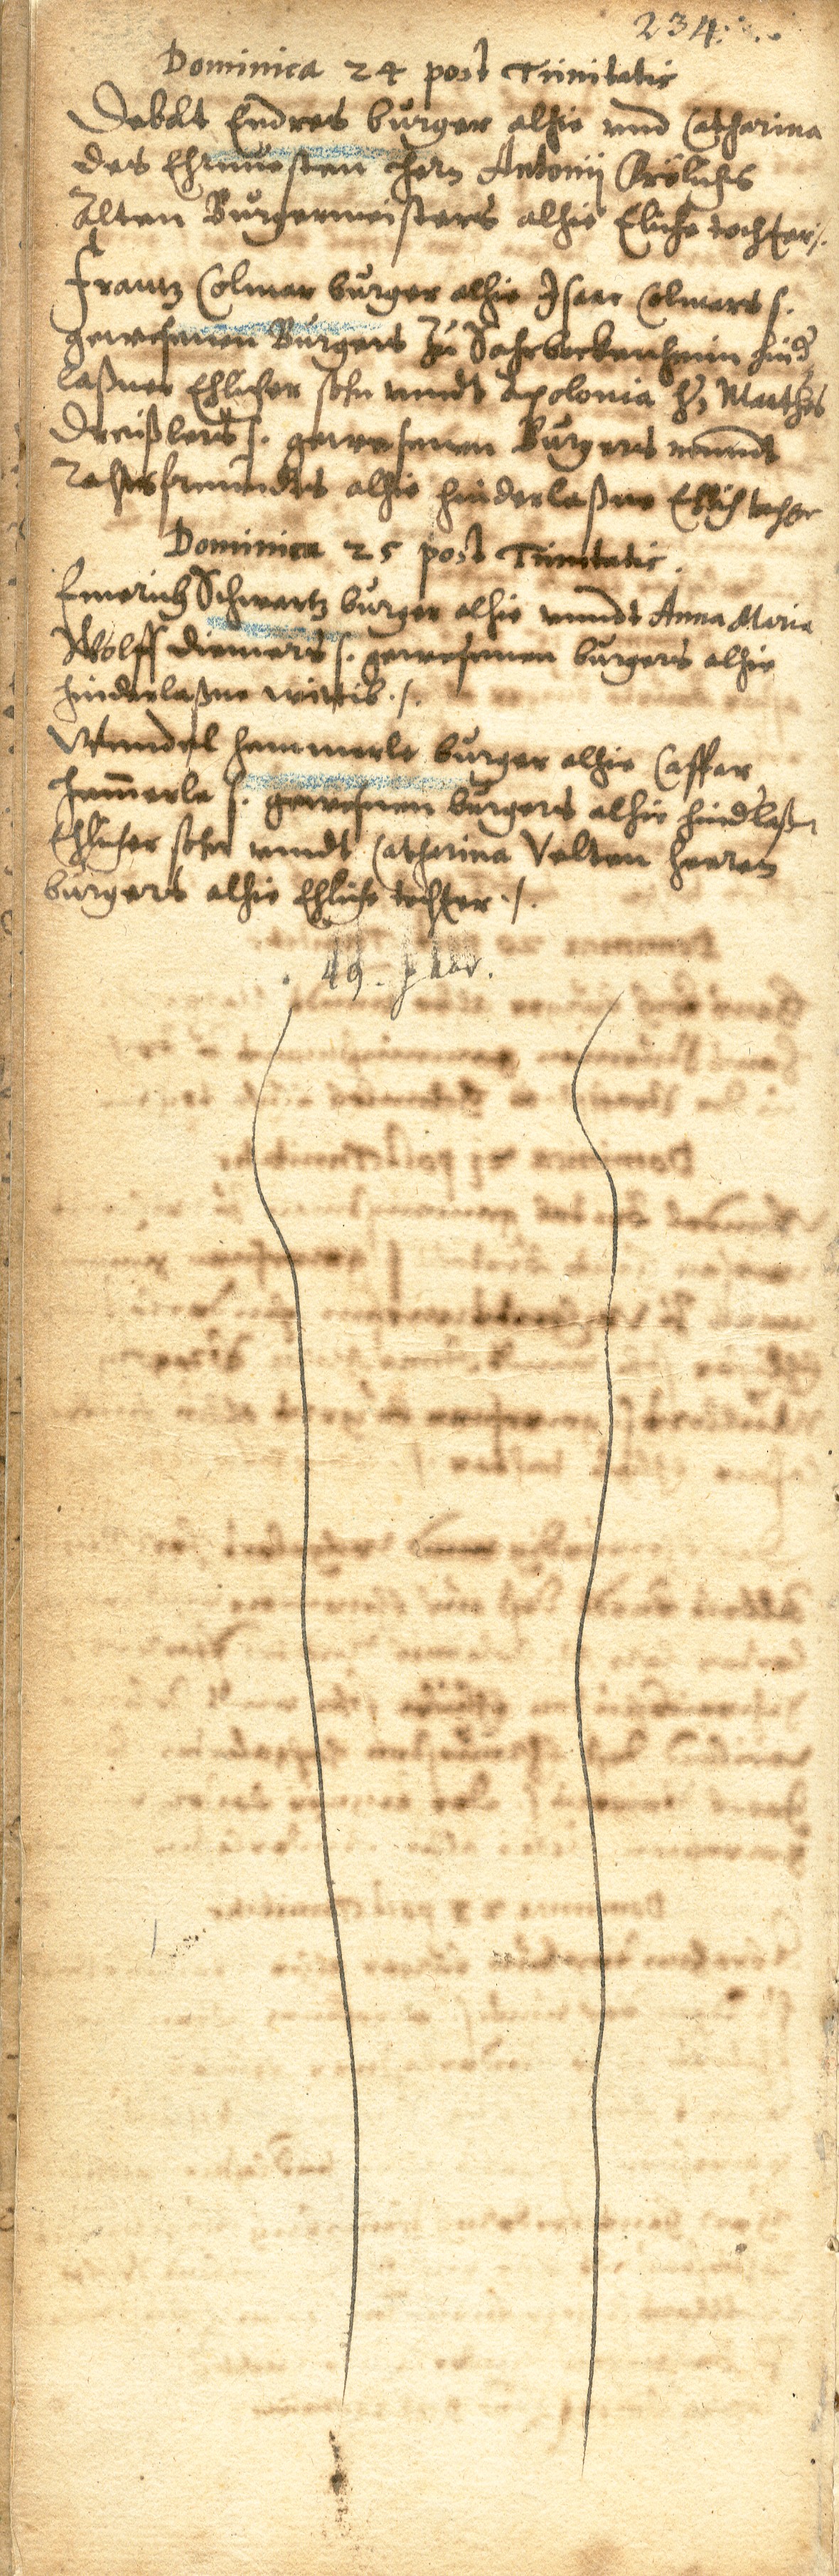 234.
Dominica 24 post Trinitatis
Debolt Endres burger alhie vnnd Catharina
des Ehrnuesten Hern Antonij Frölichs
Alten Burgermeisters alhie Eliche tochter ./.
Frantz Colmar burger alhie Isaac Colmars s.
gewesenen Burgers zu Sahrbockenheim hind
laßner Ehlicher sohn vnndt Apolonia H. Matthes
s. gewesenen Burgers vnnndt
Rahtsfreundts alhie hinderlaßne Ehlich tochter
Dominica 25 post Trinitatis.
Emerich Schwartz burger alhie vnndt Anna Maria
Wolff Diemers s. gewesenen burgers alhie
hinderlaßne wittib ./.
Wendel Hemmerle burger alhie Casspar
Hemerle s. gewesnen burgers alhie hindlaßr
Ehlicher sohn vnndt Catharina Velten Heeren
burgers alhie Ehliche tochter ./.
. 49. Paar.